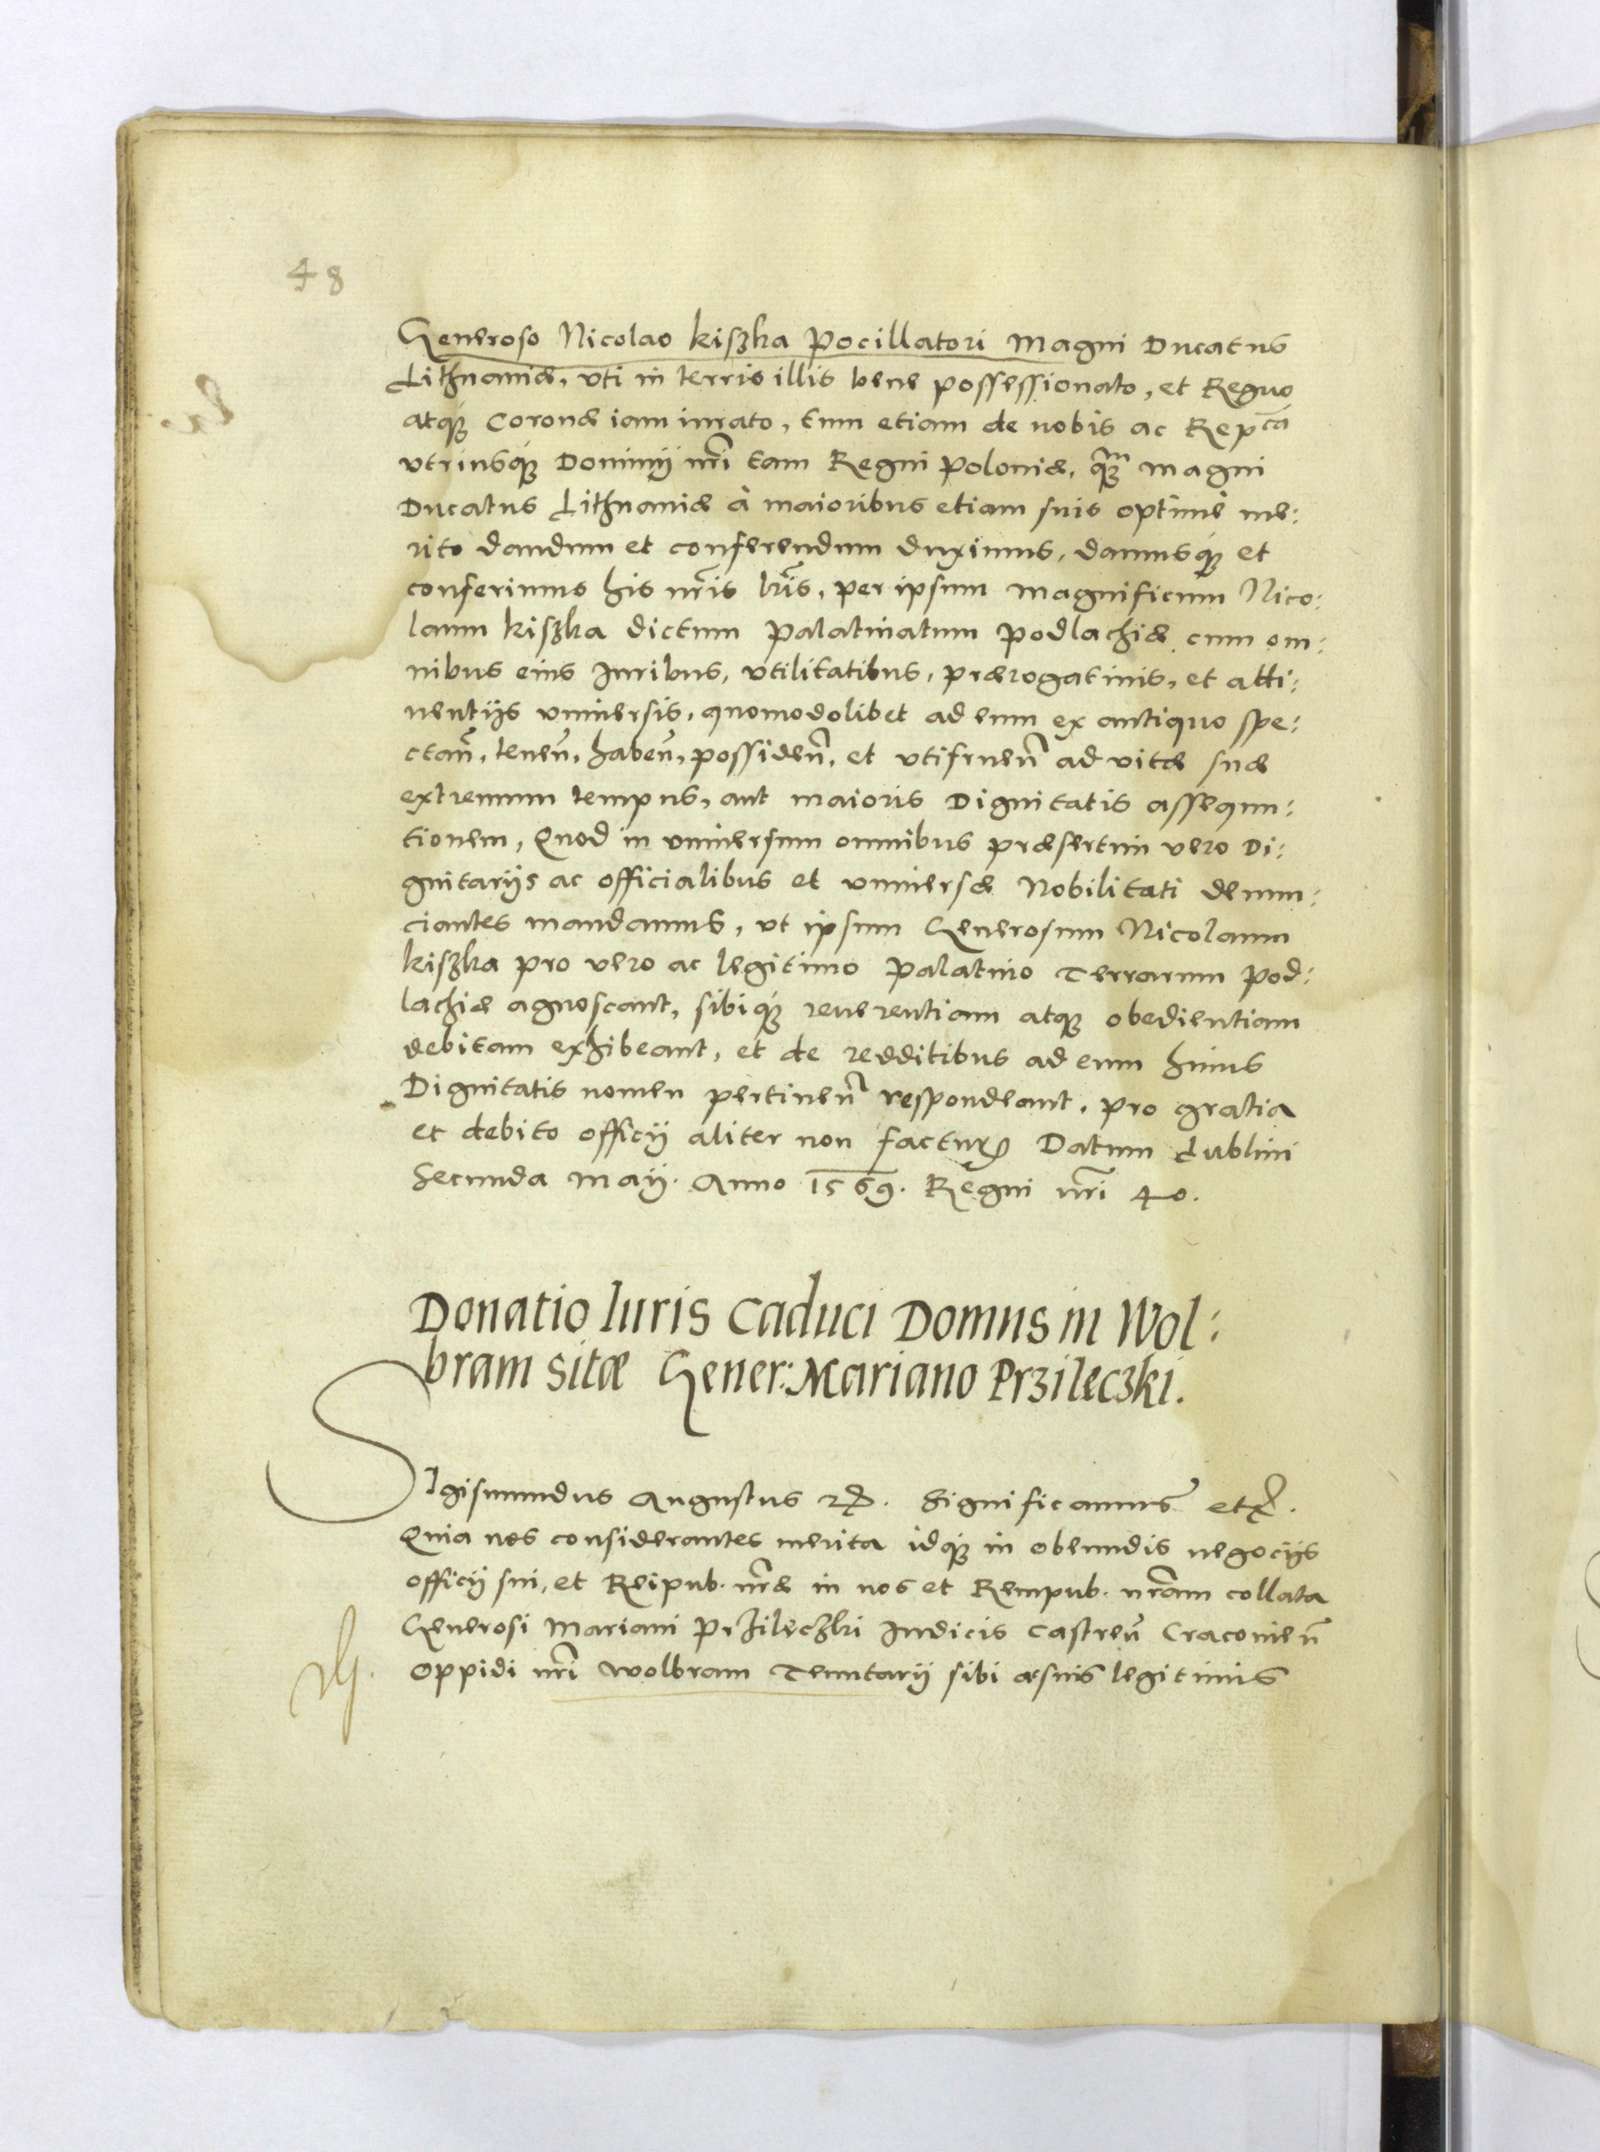 48
Generoso Nicolao kiszka pocillatori Magni Ducatus
Lithuaniæ, vti in terris illis bene possessionato, et Regno
atq₃ Coronæ iam iurato, tum etiam de nobis ac Rep<sup>ca</sup>
vtriusq₃ Dominij nr̃i tam Regni poloniæ, q₃<sup>m</sup> Magni
Ducatus Lithuaniæ à maioribus etiam suis optimè me:
rito dandum et conferendum duximus, damusq₃ et
conferimus his nr̃is lr̃is, per ipsum Magnificum Nico:
laum kiszka dictum palatinatum podlachiæ cum om:
nibus eius Iuribus, vtilitatibus, prærogatiuis, et atti:
nentijs vniuersis, quomodolibet ad eum ex antiquo spe:
ctan̄, tenen̄, haben̄, possiden̄, et vtifruen̄ ad vitæ suæ
extremum tempus, aut maioris Dignitatis assequu:
tionem, Quod in vniuersum omnibus præsertim vero Di:
gnitarijs ac officialibus et vniuersæ Nobilitati denun:
ciantes mandamus, vt ipsum Generosum Nicolaum
kiszka pro vero ac legitimo palatino Terrarum pod:
lachiæ agnoscant, sibiq₃ reuerentiam atq₃ obedientiam
debitam exhibeant, et de redditibus ad eum huius
Dignitatis nomen pertinen̄ respondeant, pro gratia
et debito officij aliter non facturꝭ Datum Lublini
Secunda Maij. Anno 1569. Regni nr̃i 40.
Donatio Iuris Caduci Domus in Wol:
bram sitæ Gener: Mariano Przileczki.
SIgismundus Augustus etc. Significamus etc.
Quia nos considerantes merita idq₃ in obeundis negocijs
officij sui, et Reipub. nr̃æ in nos et Rempub. nr̃am collata
Generosi Mariani Przileczki Iudicis Castren̄ Cracouien̄
Oppidi nr̃i Wolbram Tenutarij sibi ac suis legitimis